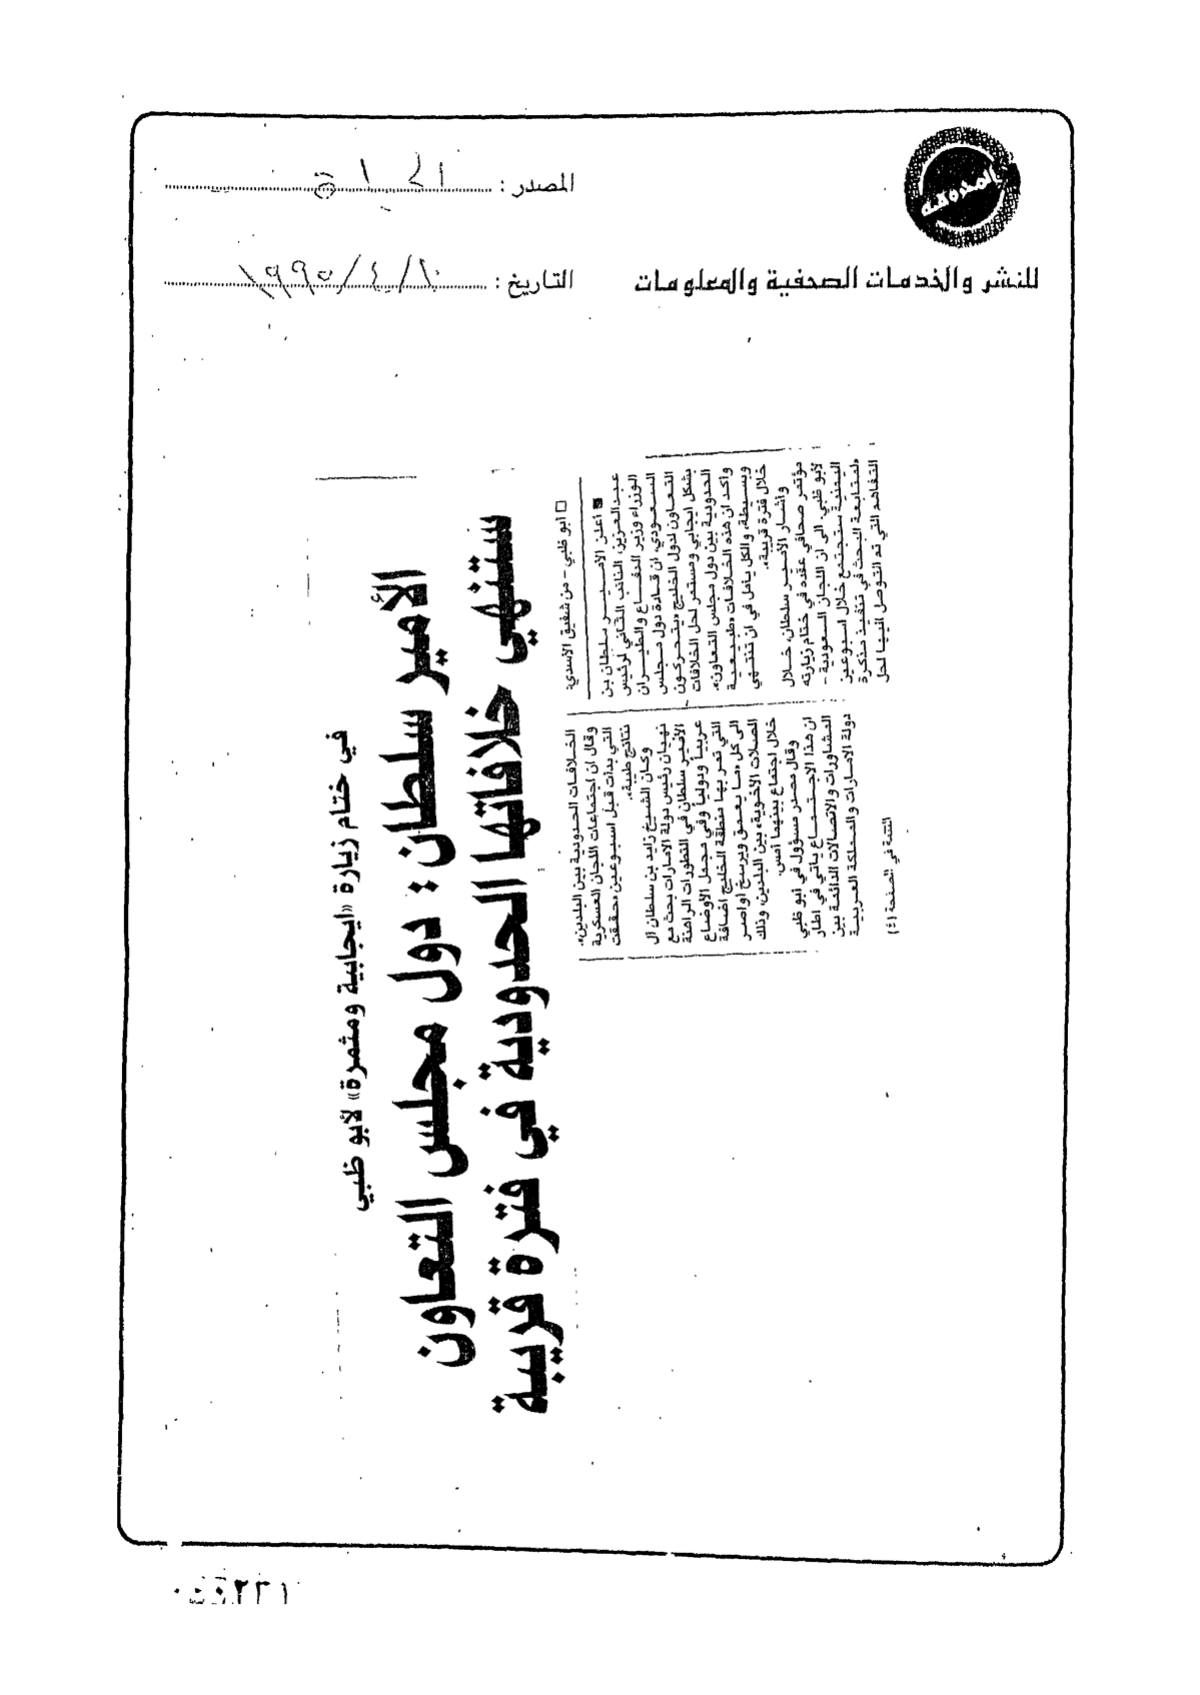 المصدر :
للنشر والخدمات الصحفية والمعلومات
التاريخ : ١٩٩٥/٤/٢٠
في ختام زيارة «ايجابية ومثمرة» لأبو ظبي
الأمير سلطان : دول مجلس التعاون
ستنهي خلافاتها الحدودية في فترة قريبة
□ ابو ظبي - من شفيق الأسدي:
■ أعلن الأمير سلطان بن
عبدالعزيز، النائب الثاني لرئيس
الوزراء وزير الدفاع والطيران
السعودي، ان قادة دول مجلس
التعاون لدول الخليج «يتحركون
بشكل ايجابي ومستمر لحل الخلافات
الحدودية بين دول مجلس التعاون».
وأكد ان هذه الخلافات «طبيعية
وبسيطة، والكل يأمل في ان تنتهي
خلال فترة قريبة».
وأشار الأمير سلطان، خلال
مؤتمر صحافي عقده في ختام زيارته
لأبو ظبي، الى ان اللجان السعودية -
اليمنية ستجتمع خلال اسبوعين
«لمتابعة البحث في تنفيذ مذكرة
التفاهم التي تم التوصل اليها لحل
الخلافات الحدودية بين البلدين».
وقال ان اجتماعات اللجان العسكرية
التي بدأت قبل اسبوعين «حققت
نتائج طيبة».
وكان الشيخ زايد بن سلطان آل
نهيان رئيس دولة الامارات بحث مع
الأمير سلطان في التطورات الراهنة
عربياً ودولياً وفي مجمل الأوضاع
التي تمر بها منطقة الخليج اضافة
الى كل «ما يعمق ويرسخ أواصر
الصلات الأخوية» بين البلدين، وذلك
خلال اجتماع بينهما أمس.
وقال مصدر مسؤول في ابو ظبي
ان هذا الاجتماع يأتي في اطار
المشاورات والاتصالات الدائمة بين
دولة الامارات والمملكة العربية
التتمة في الصفحة (٤)